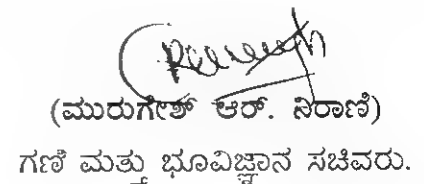 (ಮುರುಗೇಶ್ ಆರ್. ನಿರಾಣಿ)
ಗಣಿ ಮತ್ತು ಭೂವಿಜ್ಞಾನ ಸಚಿವರು.